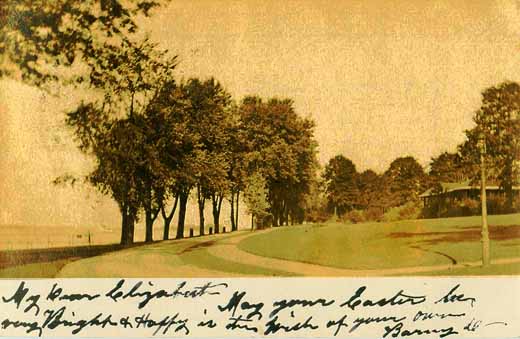 My Dear Elizabeth May your Easter be
very Bright & Happy is the Wish of your own
Barny